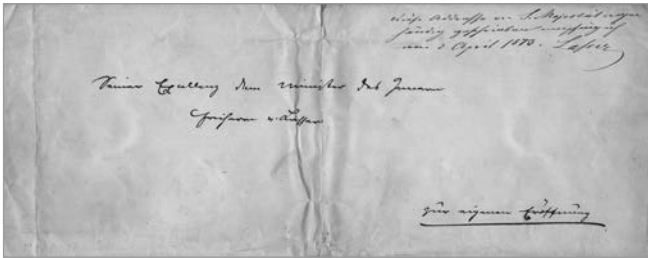 diese Addresse v. S. Majestät eigen
händig geschrieben empfing ich
am 3 April 1873. Lasser
Seiner Exzellenz dem Minister des Innern
Freiherrn v. Lasser
zur eigenen Eröffnung